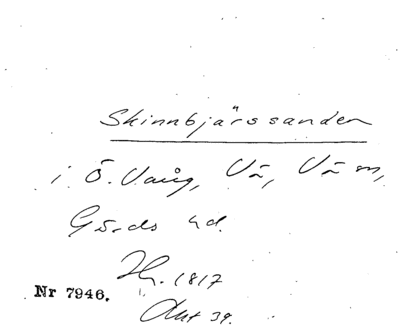 Skinnbjärssanden
i Ö. Vång, Vä, Vä m,
Gärds hd.
Hn. 1817
Nr 7946.
Akt 39.